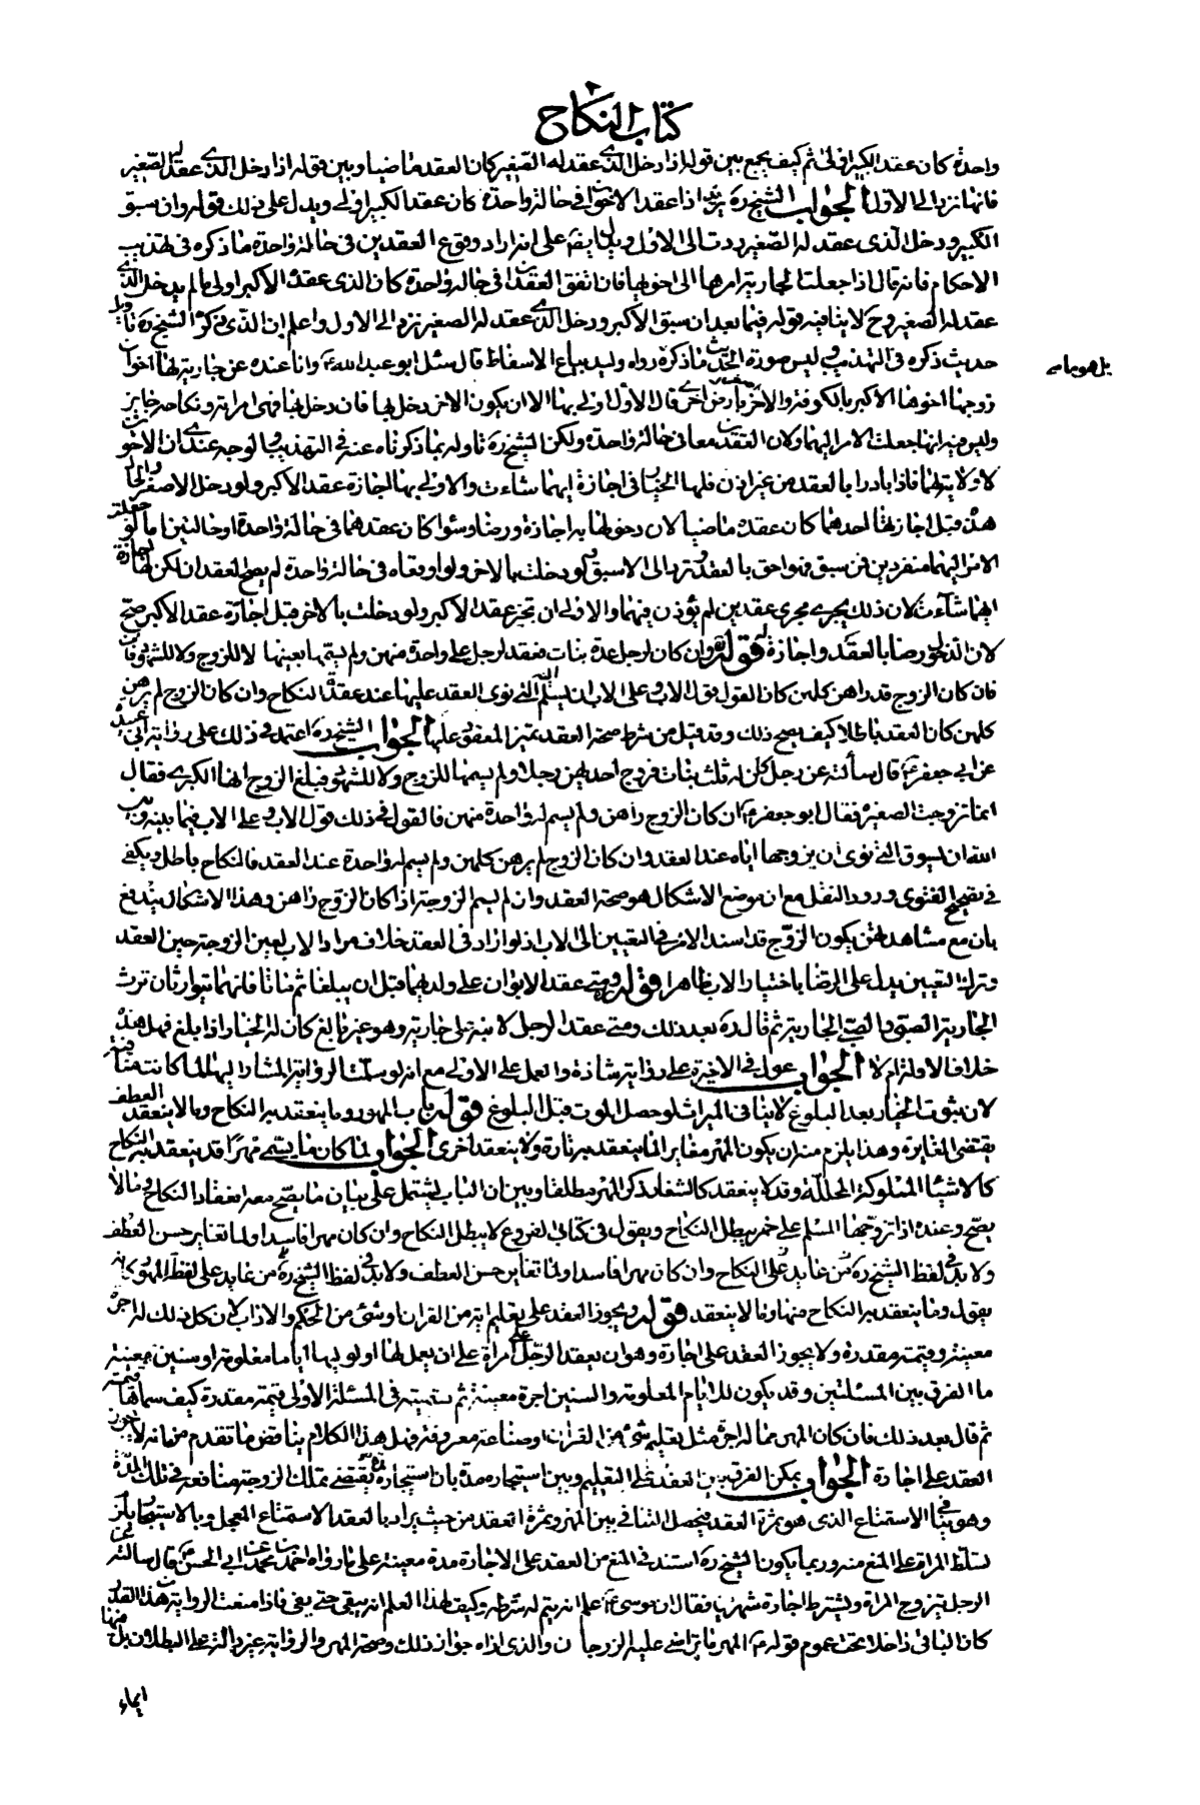 كتاب النكاح
واحدة كان عقد الكبير اولى ثم كيف يجمع بين قوله اذا دخل الذى عقد له الصغير كان العقد ماضيا وبين قوله اذا دخل الذى عقد له الصغير
فانها ترد الى الاول الجواب الشيخ ره يريد اذا عقد الاخوان فى حالة واحدة كان عقد الكبير اولى ويدل على ذلك قوله وان سبق
الكبير ودخل الذى عقد له الصغير ردت الى الاول ويدل ايضا على انه اراد وقوع العقدين فى حالة واحدة ما ذكره فى تهذيب
الاحكام فانه قال اذا جعلت الجارية امرها الى اخويها فان اتفق العقدان فى حالة واحدة كان الذى عقده الاكبر اولى ما لم يدخل الذى
عقد له الصغير وح لا ينافيه قوله فيما بعد ان سبق الاكبر ودخل الذى عقد له الصغير ترد الى الاول واعلم ان الذى ذكره الشيخ ره تاويل
حديث ذكره فى التهذيب وليس صورة الحديث ما ذكره رواه وليد بياع الاسفاط قال سئل ابو عبد الله ع وانا عنده عن جارية لها اخوان
زوجها اخوها الاكبر بالكوفة والاخر بارض اخرى قال الاول اولى بها الا ان يكون الاخر دخل بها فان دخل بها فهى امراته ونكاحه جايز
وليس فيه انها جعلت الامر اليهما ولا ان العقدين معا فى حالة واحدة ولكن الشيخ ره تاوله بما ذكرناه عنه فى التهذيب والوجه عندى ان الاخوين
لا ولاية لهما فاذا بادرا بالعقد من غير اذن فلها الخيار فى اجازة ايهما شاءت والاولى بها اجازة عقد الاكبر ولو دخل الاصغر والحال
هذه قبل اجازتها لاحدهما كان عقده ماضيا لان دخولها به اجازة ورضا وسواء كان عقدهما فى حالة واحدة او حالتين اما لو جعلت
الامر اليهما منفردين فمن سبق فهو احق بالعقد وترد الى الاسبق لو دخلت بالاخر ولو اوقعاه فى حالة واحدة لم يصح العقدان لكن لها اجازة
ايهما شاءت لان ذلك يجرى مجرى عقدين لم يؤذن فيهما والاولى ان تجيز عقد الاكبر ولو دخلت بالاخر قبل اجازة عقد الاكبر صح
لان الدخول رضا بالعقد واجازة له قوله وان كان لرجل عدة بنات فعقد لرجل على واحدة منهن ولم يسمها بعينها لا للزوج ولا للشهود فان
فان كان الزوج قد راهن كلهن كان القول قول الاب وعلى الاب ان يسلم اليه التى نوى العقد عليها عند عقدة النكاح وان كان الزوج لم يرهن
كلهن كان العقد باطلا كيف يصح ذلك وقد قيل من شرط صحة العقد تميز المعقود عليها الجواب الشيخ ره اعتمد فى ذلك على رواية ابى عبيدة
عن ابى جعفر ع قال سألته عن رجل كن له ثلث بنات فزوج احديهن رجلا ولم يسمها للزوج ولا للشهود فبلغ الزوج انها الكبرى فقال
انما تزوجت الصغيرة فقال ابو جعفر ع ان كان الزوج راهن ولم يسم له واحدة منهن فالقول فى ذلك قول الاب وعلى الاب فيما بينه وبين
الله ان يسوق التى نوى ان يزوجها اياه عند العقد وان كان الزوج لم يرهن كلهن ولم يسم له واحدة عند العقد فالنكاح باطل ويكفى
فى تصحيح الفتوى ورود النقل مع ان موضع الاشكال هو صحة العقد وان لم يسم الزوجة اذا كان الزوج راهن وهذا الاشكال يندفع
بان مع مشاهدتهن يكون الزوج قد اسند الامر فى التعيين الى الاب اذ لو اراد فى العقد خلاف مراد الاب لعين الزوجة حين العقد
وترك التعيين يدل على الرضا باختيار الاب ظاهرا قوله ومتى عقد الابوان على ولديهما قبل ان يبلغا ثم ماتا فانهما يتوارثان ترث
الجارية الصبى والصبى الجارية ثم قال ره بعد ذلك ومتى عقد الرجل لابنه على جارية وهو غير بالغ كان له الخيار اذا بلغ فهل هذه
خلاف الاولة ام لا الجواب عول فى الاخيرة على رواية شاذة والعمل على الاولى مع انه لو سلمت الرواية المشار اليها لما كانت منافية
لان ثبوت الخيار بعد البلوغ لا ينافى الميراث لو حصل الموت قبل البلوغ قوله باب المهور وما ينعقد به النكاح وما لا ينعقد العطف
يقتضى المغايرة وهذا يلزم منه ان يكون المهر مغايرا لما ينعقد به تارة ولا ينعقد اخرى الجواب لما كان ما يسمى مهرا قد ينعقد به النكاح
كالاشياء المملوكة المحللة وقد لا ينعقد كالشغار ذكر المهر مطلقا وبين ان الباب يشتمل على بيان ما يصح معه انعقاد النكاح وما لا
يصح وعنده اذا تزوجها المسلم على خمر يبطل النكاح ويقول فى كتاب الفروع لا يبطل النكاح وان كان مهرا فاسدا ولما تغاير حسن العطف
ولا بد فى لفظ الشيخ ره من عايد على النكاح وان كان مهرا فاسدا ولما تغاير حسن العطف ولا بد فى لفظ الشيخ ره من عايد على لفظ المهور كانه
يقول وما ينعقد به النكاح منها وما لا ينعقد قوله ويجوز العقد على تعليم اية من القران او شئ من الحكم والاداب لان كل ذلك له اجرة
معينة وقيمته مقدرة ولا يجوز العقد على اجارة وهو ان يعقد الرجل على امراة على ان يعمل لها او لوليها اياما معلومة او سنين معينة
ما الفرق بين المسئلتين وقد يكون للايام المعلومة والسنين اجرة معينة ثم تسميته فى المسئلة الاولى قيمة مقدرة كيف سماها قيمة
ثم قال بعد ذلك فان كان المهر مما له اجر مثل تعليم شئ من القران او صناعة معروفة فهل هذا الكلام يناقض ما تقدم من انه لا يجوز
العقد على اجارة الجواب يمكن الفرق بين العقد على التعليم وبين استيجاره مدة بان استيجاره مدة يقتضى تملك الزوجة منافعه فى تلك المدة
وهو ينافى الاستمتاع الذى هو ثمرة العقد فيحصل التنافى بين المهر وثمرة العقد من حيث يراد بالعقد الاستمتاع المعجل وبالاستيجار يلزم
تسلط المراة على المنع منه وربما يكون الشيخ ره استند فى المنع من العقد على الاجارة مدة معينة على ما رواه احمد بن محمد عن ابى الحسن ع قال سالته عن
الرجل يتزوج المراة ويشترط اجارة شهرين فقال ان موسى ع علم انه يتم له شرطه وكيف لهذا العلم انه يبقى حتى يفى فاذا منعت الرواية هذا القدر
كان الباقى داخلا تحت عموم قوله ع المهر ما تراضى عليه الزوجان والذى اراه جواز ذلك وصحة المهر والرواية غير دالة على البطلان بل منها
ايماء